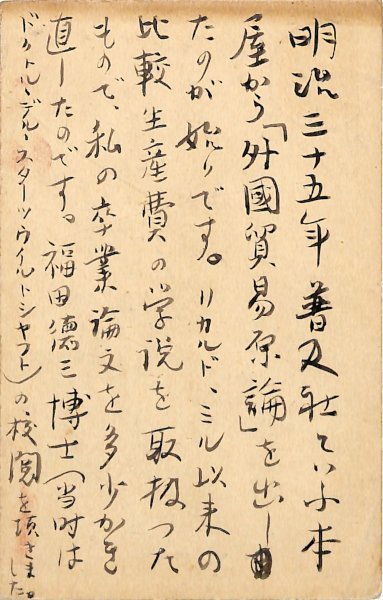 明治三十五年普及社といふ本
屋から「外國貿易原論」を出し
たのが始りです。リカルド、ミル以来の
比較生産費の学説を取扱つた
もので、私の卒業論文を多少かき
直したのです。福田徳三博士(当时は
ドクトル・デル・スターツウイルトシャフト)の校閲を頂きました。